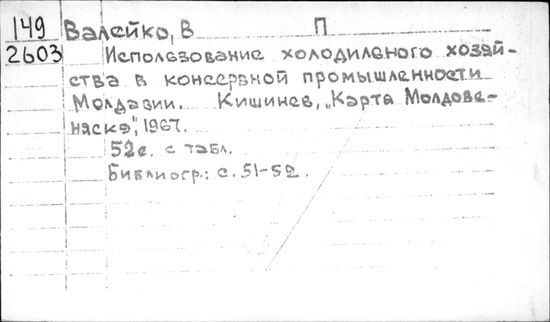 149 Валейко, В П
2603 Использование холодильного хозяй-
ства в консервной промышленности
Молдавии. Кишинев, „Картя Молдове-
няскэ", 1967.
52с. с табл.
Библиогр.: с. 51-52.